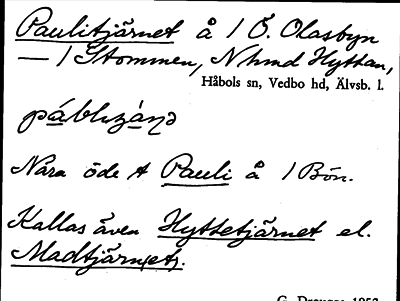 Paulitjärnet å 1 Ö. Olasbyn
— 1 Stommen, N hmd Hyttan,
Håbols sn, Vedbo hd, Älvsb. l.
Nära öde t Pauli å 1 Bön.
Kallas även Hyttetjärnet el.
Madtjärn(et).